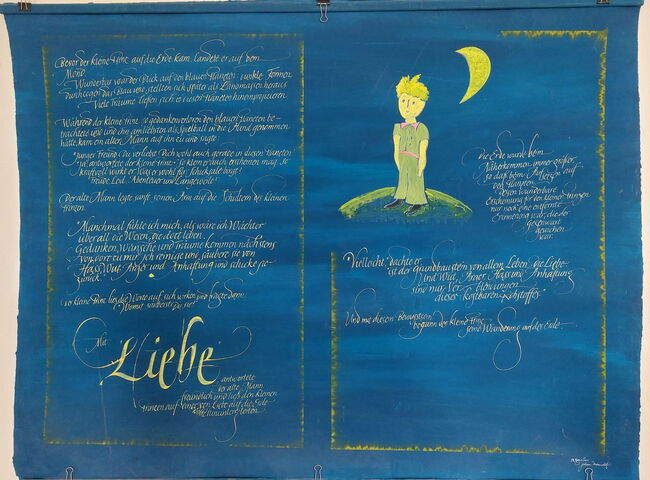 Bevor der kleine Prinz auf die Erde kam, landete er auf dem
Mond.
Wunderbar war der Blick auf den blauen Planeten: dunkle Formen
durchzogen das Blau und stellten sich später als Landmassen heraus
Viele Träume ließen sich in diesen Planeten hineinprojizieren
Während der kleine Prinz so gedankenverloren den blauen Planeten be-
trachtete und ihn am liebsten als Spielball in die Hand genommen
hätte, kam ein alter Mann auf ihn zu und sagte:
Junger Freund, Du verliebst Dich wohl auch gerade in diesen Planeten
Ja antwortete der kleine Prinz. So klein er auch erscheinen mag, so
kraftvoll wirkt er. Was er wohl für Schicksale birgt?
Freude, Leid, Abenteuer und Langeweile?
Der alte Mann legte sanft seinen Arm auf die Schultern des kleinen
Prinzen:
Manchmal fühle ich mich, als wäre ich Wächter
über all die Wesen, die dort leben.
Gedanken, Wünsche und Träume kommen nächstens
von dort zu mir. Ich reinige und säubere sie von
Hass, Wut, Ärger und Anhaftung und schicke sie
zurück.
Der kleine Prinz ließ die Worte auf sich wirken und fragte dann:
Womit säuberst Du sie?
Mit
Liebe
antwortete
der alte Mann
freundlich und ließ den kleinen
Prinzen auf einer von Liebe auf die Erde
hinuntergleiten.
Die Erde wurde beim
Näherkommen immer größer
so daß beim Auftreffen auf
den Planeten
dessen wunderbare
Erscheinung für den kleinen Prinzen
nur noch eine entfernte
Erinnerung war, die der
Gegenwart
gewichen
war.
Vielleicht, dachte er,
ist der Grundbaustein von allem Leben die Liebe
Und Wut, Ärger, Hass und Anhaftung
sind nur Verblendungen
dieses kostbaren Rohstoffes.
Und mit diesem Bewusstsein
begann der kleine Prinz
seine Wanderung auf der Erde.